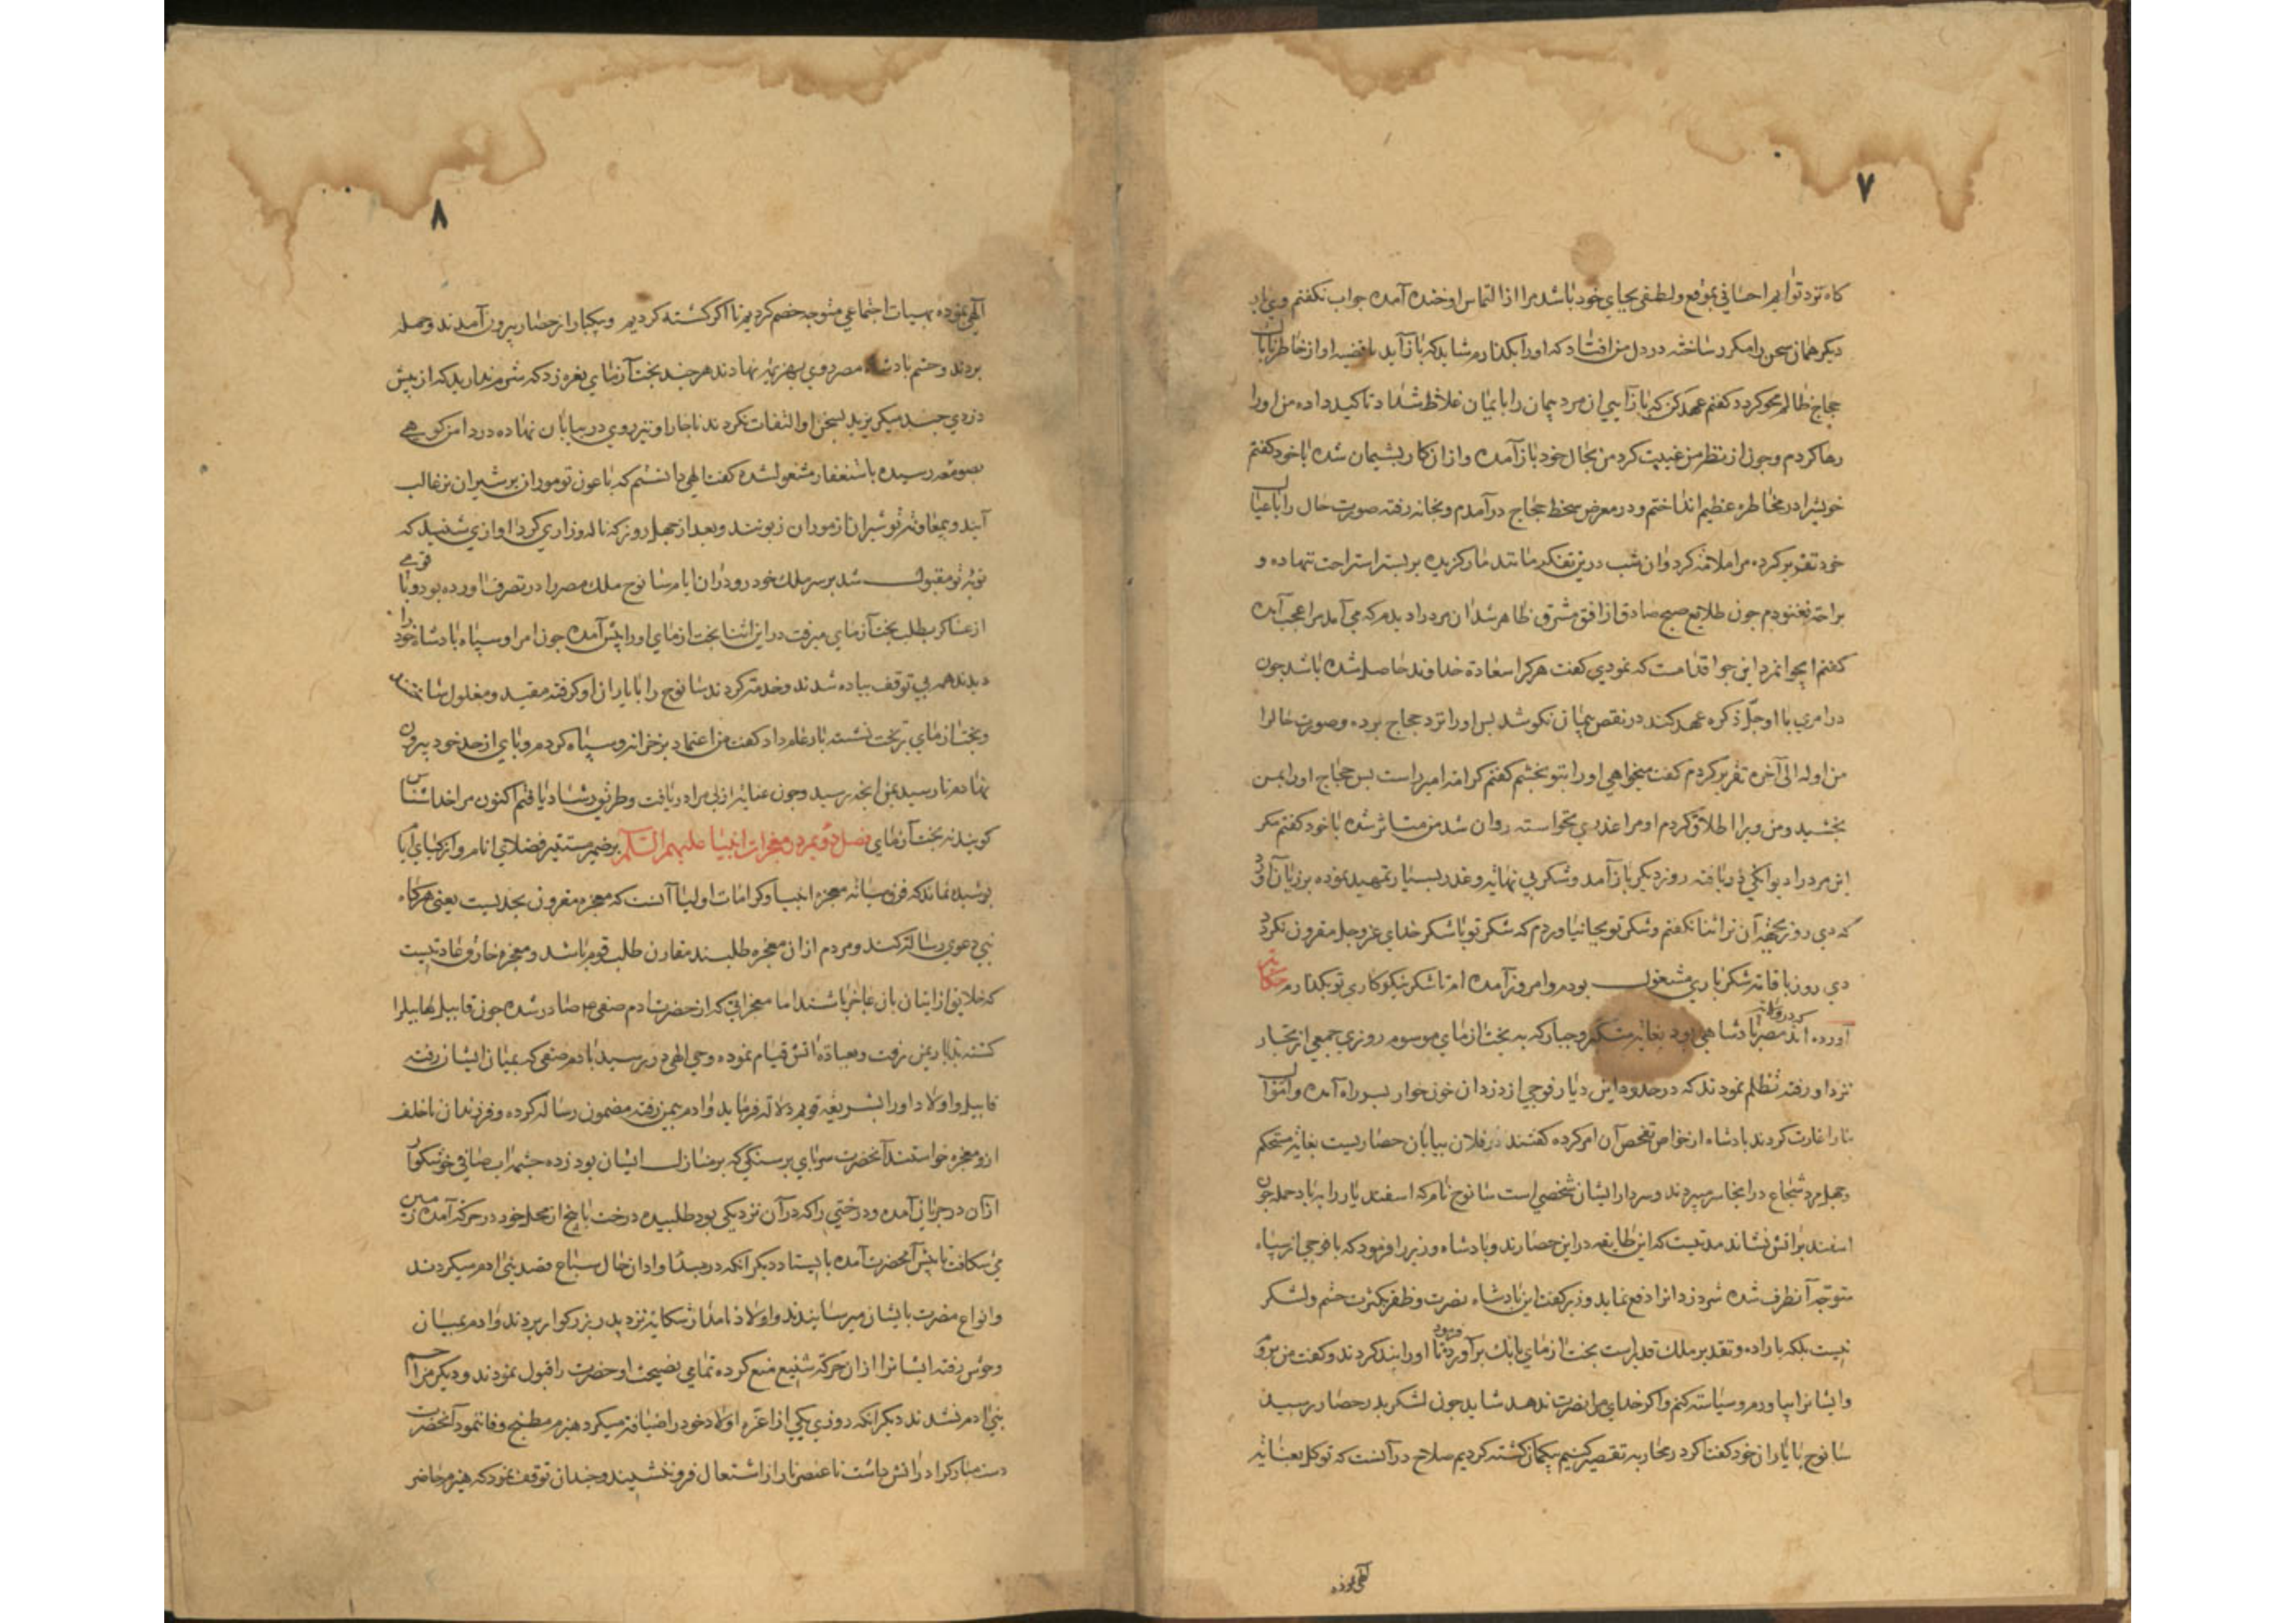 ۷
کاه نزد تو ایم احسانی بموقع ولطفی بجای خود باشد مرا از التماس او خنده آمده جواب نکفتم وی بار
دیکر همان سخن را مکرر ساخته در دل من افتاد که اورا بکذارم شاید که باز آید یا قضیه او از خاطر
حجاج ظالم محو کردد کفتم عهد کن که باز آیی ان مرد پیمان را بایمان غلاظ شداد تاکید داده من اورا
رها کردم وجون از نظر من غیبت کرد من بحال خود باز آمده و از ان کار پشیمان شده با خود کفتم
خویشرا در مخاطره عظیم انداختم و در معرض سخط حجاج درآمدم وبخانه رفته صورت حال را باعیال
خود تقریر کرده مرا ملامة کرد وان شب درین تفکر مانند مار کزیده بر بستر استراحت نهاده و
براحة نغنودم جون طلایع صبح صادق از افق مشرق ظاهر شد ان مرد را دیدم که می آمد مرا عجب آمده
کفتم ایجوانمرد این جوا قدامت که نمودی کفت هرکرا سعادة خداوند حاصل شده باشد جون
در امری با او جلّ ذکره عهد کند در نقص پیمان نکوشد پس اورا نزد حجاج برده وصورت حالرا
من اوله الی آخره تقریر کردم کفت میخواهی اورا بتو بخشم کفتم کرامة امیر راست پس حجاج اورا بمن
بخشید ومن ویرا اطلاق کردم او مرا عذری نخواسته روان شد من متاثر شده با خود کفتم مکر
این مرد را دیوانکی دریافته روز دیکر باز آمد وشکر بی نهایة وعذر بسیار تمهید نموده بر زبان آورد
که دی روز بجهة آن ترا ثنا نکفتم وشکر تو بجا نیاوردم که شکر تو با شکر خدای عز وجل مقرون نکردد
دی روز باقامة شکر باری مشغول بودم وامروز آمده ام تا شکر نیکوکاری تو بکذارم حکایة
آورده اند که در ولایة مصر پادشاهی بود بغایة متکبر وجبار که به بخت ازمای موسوم روزی جمعی از تجار
نزد او رفته تظلم نمودند که در حدود این دیار فوجی از دزدان خون خوار بسر راه آمده واموال
مارا غارت کردند پادشاه از خواص تفحص آن امر کرده کفتند در فلان بیابان حصاریست بغایة مستحکم
وجهل مرد شجاع در انجا سر میبردند وسردار ایشان شخصی است سانوح نام که اسفندیار را بباد حمله جون
اسفند بر اتش نشاند مدتیست که این طایفه در این حصارند وپادشاه وزیر را فرمود که با فوجی از سپاه
متوجّه آنطرف شده شر دزدانرا دفع نماید وزیر کفت این پادشاه نصرت وظفر بکثرت حشم ولشکر
نیست بلکه باراده وتقدیر ملک قدیر است بخت ازمای بانک برآورد فرمود تا اورا بند کردند وکفت من بروم
وایشانرا بیاورم وسیاست کنم واکر خدای مرا نصرت ندهد شاید جون لشکر بدر حصار رسید
سانوح با یاران خود کفت اکر در محاربه تقصیر کنیم بیکمان کشته کردیم صلاح در آنست که توکل بعنایة
الهی نموده
۸
الهی نموده بهیات اجتماعی متوجه خصم کردیم تا اکر کشته کردیم وبیکبار از حصار بیرون آمدند وحمله
بردند وحشم پادشاه مصر روی بهزیمة نهادند هرجند بخت آزمای نعره زد که شرم ندارید که از پیش
دزدی جند میکریزید بسخن او التفات نکردند ناجار او نیز روی در بیابان نهاده در دامن کوهی
بصومعه رسیده باستغفار مشغول شده کفت الهی دانستم که با عون تو موران بر شیران نر غالب
آیند وبمعاونة تو شیران از موران زبونند وبعد از جهل روز که ناله وزاری کرد اوازی شنید که
توبه تو مقبول شد بر سر ملک خود رو ودران ایام سانوح ملک مصر را در تصرف اورده بود وبا قومی
از عساکر بطلب بخت آزمای میرفت در این اثنا بخت ازمای اورا پیش آمده جون امرا وسپاه پادشاه خود را
دیدند همه بی توقف پیاده شدند وخدمة کردند سانوح را با یاران او کرفته مقید ومغلول ساختند
وبخت ازمای بر تخت نشسته بار عام داد کفت من اعتماد بر خزانه وسپاه کردم وپای از حد خود بیرون
نهادم تا رسید بمن انجه رسید وجون عنایة ازلی مرا دریافت وطریق رشاد یافتم اکنون مرا خداشناس
کویند نه بخت آزمای فصل دویم در معجزات انبیا علیهم السّلام بر ضمیر مستنیر فضلای انام وازکیای ایام
پوشیده نماند که فرق میانه معجزه انبیا وکرامات اولیا آنست که معجزه مقرون بتحدیست یعنی هرکاه
نبی دعوی رسالة کند ومردم ازان معجزه طلبند مقارن طلب قوم باشد ومعجزه خارق عادتیست
که خلایق از اتیان بان عاجز باشند اما معجزاتی که از حضرت ادم صفی ۴ صادر شده جون قابیل هابیلرا
کشته بدیار یمن رفت وبعبادة اتش قیام نموده وحی الهی در رسید بادم صفی که بمیان ایشان رفته
قابیل واولاد اورا بشریعة قویم دلالة فرماید وادم بیمن رفته مضمون رسالة کرده وفرزندان ناخلف
ازو معجزه خواستند آنحضرت سر پای بر سنکی که بر منازل ایشان بود زده جشمه اب صافی خوشکوار
ازان در جریان آمده ودرختی را که درآن نزدیکی بود طلبیده درخت با بیخ از محل خود در حرکة آمده زمین
می شکافت تا پیش آنحضرت آمده بایستاد دیکر انکه در مبدا واوان حال سباع قصد بنی ادم میکردند
وانواع مضرت بایشان میرسانیدند واولاد نامدار شکایة نزد پدر بزرکوار بردند وادم بمیان
وحوش رفته ایشانرا ازان حرکة شنیع منع کرده تمامی نصیحت اوحضرت را قبول نمودند ودیکر مزاحم
بنی ادم نشدند دیکر انکه روزی یکی از اعزّه اولاد خود را ضیافة میکرد هیزم مطبخ وفا ننمود آنحضرت
دست مبارکرا در اتش داشت تا عنصر نار از اشتعال فرو ننشیند وجندان توقف نمود که هیزم حاضر